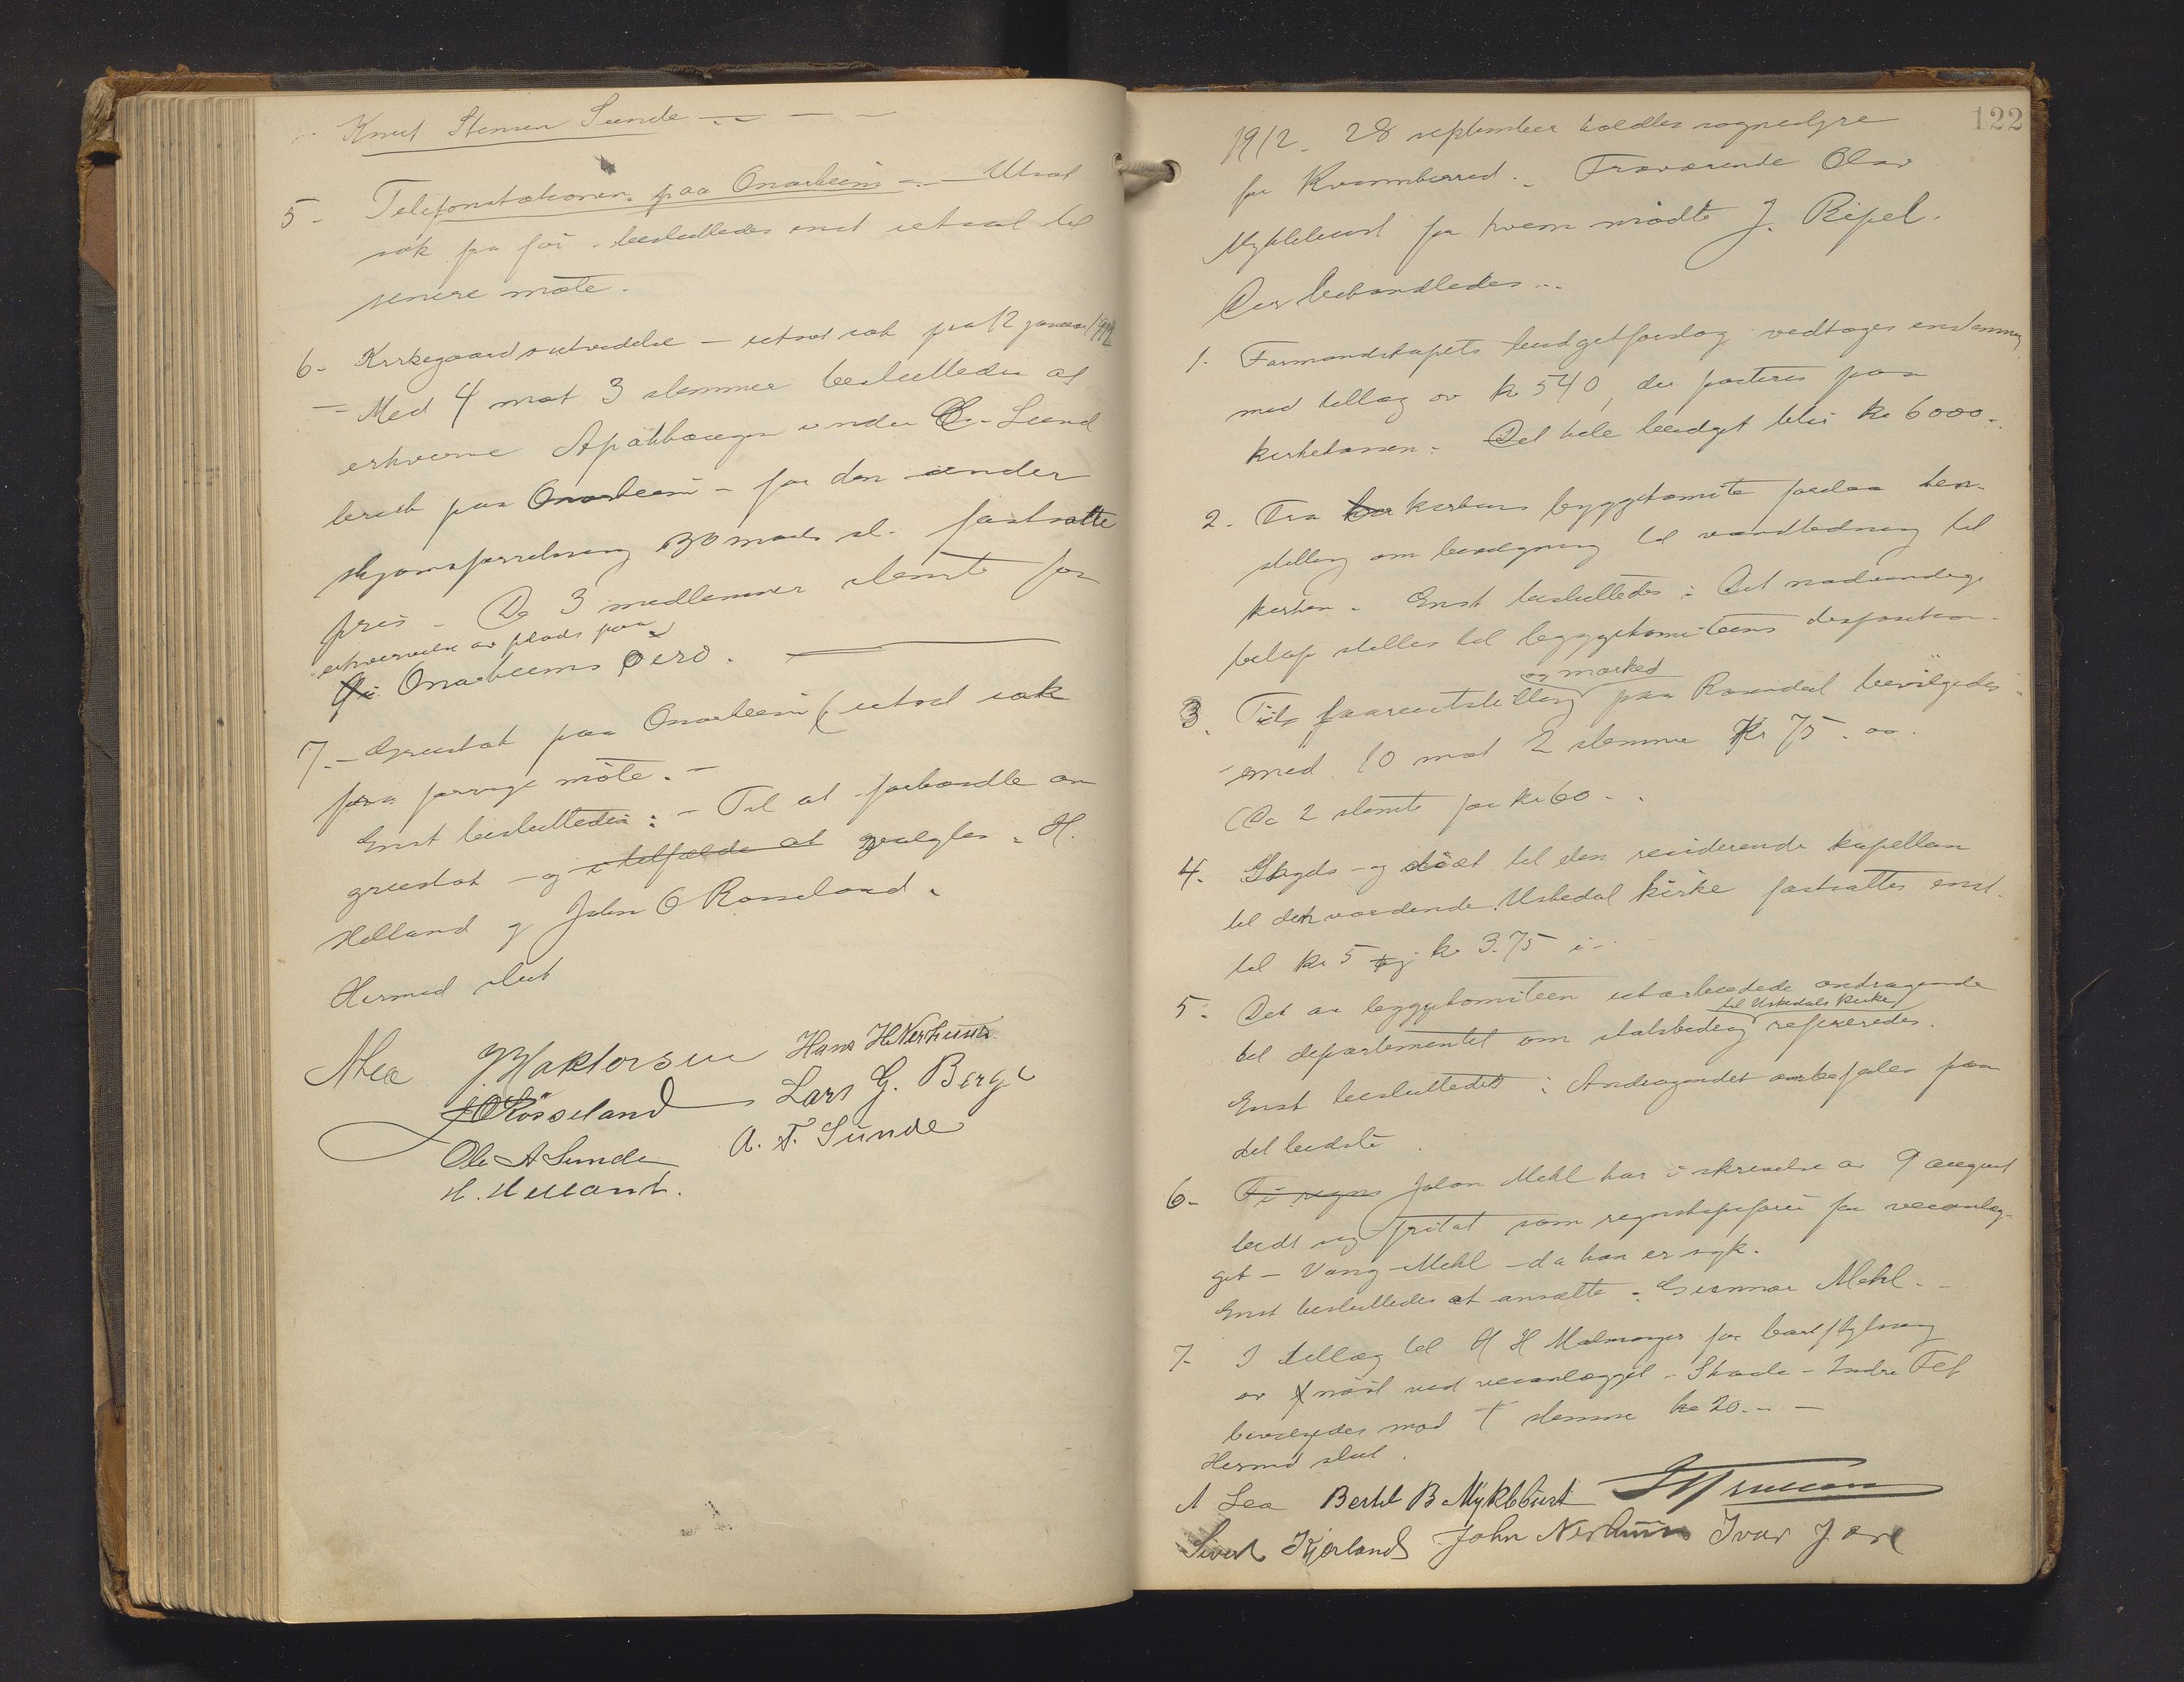 Knut Stensen Sunde - - - -
5 - Telefonstationen paa Onarheim - Utsat
sak fra før - besluttedes enst utsat til
senere møte.
6 - Kirkegaardsutvidelse - utsat sak fra 12 januar 1912
- Med 4 mot 3 stemmer besluttedes at
erhverve Apalhaugen under Lund
bruk paa Onarheim - for den under
skjønsforretning 30 mars sl. fastsatte
pris - De 3 medlemmer stemte for
erhvervelse av plads paa
Onarheims øero.
7. - Grustak paa Onarheim (utsat sak
fra forrige møte. -
Enst besluttedes: - Til at forhandle om
grustak - og i tilfælde at valgtes - H.
Helland og John O Rosseland.
Hermed slut
ALea J. Haktorsen Hans H. Nerhuus
J O Røsseland Lars G. Berge
Ole A Sunde A. T. Sunde
H. Helland.
122
1912 - 28 september holdtes sognestyre
for Kvinnherred. - Fraværende Olav
Myklebust for hvem mødte J. Ripel.
Der behandledes...
1. Formandskapets budgetforslag vedtages enstemmig
med tillæg av kr 540, der posteres paa
kirkekassen. Det hele budget blir kr 6000 -
2. Fra kirkens byggekomite forelaa hen-
stilling om bevilgning til vandledning til
kirken. Enst besluttedes: Det nødvendige
beløp stilles til byggekomiteens disposition.
og marked
3. Til faareutstilling paa Rosendal bevilgedes
- med 10 mot 2 stemmer Kr 75.00.
(De 2 stemte for kr 60 - .
4. Skyds - og diæt til den residerende kapellan
til den vordende Uskedal kirke fastsattes enst.
til kr 5 og kr 3.75 i -
5. Det av byggekomiteen utarbeidede andragende
til Uskedals kirke
til departementet om statsbidrag refereredes.
Enst besluttedes: Andragendet anbefales paa
det bedste.
6 - Ti regns Johan Mehl har i skrivelse av 9 august
bedt sig fritat som regnskapsfører for veianlæg-
get - Vang - Mehl - da han er syk.
Enst besluttedes at ansætte - Gunnar Mehl. -
7 - I tillæg til H H Malmanger for bortflytning
av nøst ved veianlægget - Skaale - Indre Tef
bevilgedes mod 1 stemme kr 20. - -
Hermed slut.
A Lea Bertel B Myklebust
Sivert Kjerland John Nerhuus Ivar J